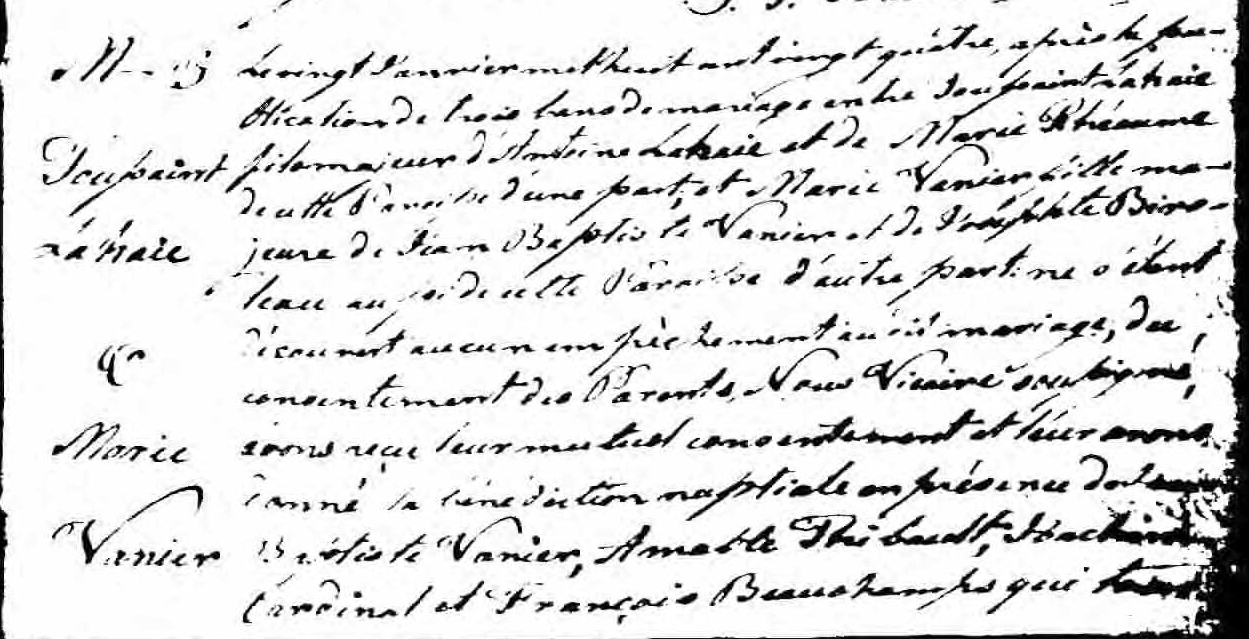 M
Le vingt Janvier mil huit cent vingt quatre, après la pu-
blication de trois bans de mariage entre Toussaint Lahaie
Toussaint fils majeur d'Antoine Lahaie et de Marie Rhéaume
de cette Paroisse d'une part; et Marie Vanier fille ma-
Lahaie jeure de Jean Baptiste Vanier et de Josephte Biro-
leau aussi de cette Paroisse d'autre part: ne s'étant
découvert aucun empêchement au dit mariage, du
& consentement des Parents, Nous Vicaire soussigné,
Marie avons reçu leur mutuel consentement et leur avons
donné la bénédiction nuptiale en présence de
Vanier Baptiste Vanier, Amable Thibault, Joachim
Cardinal et François Beauchamps qui